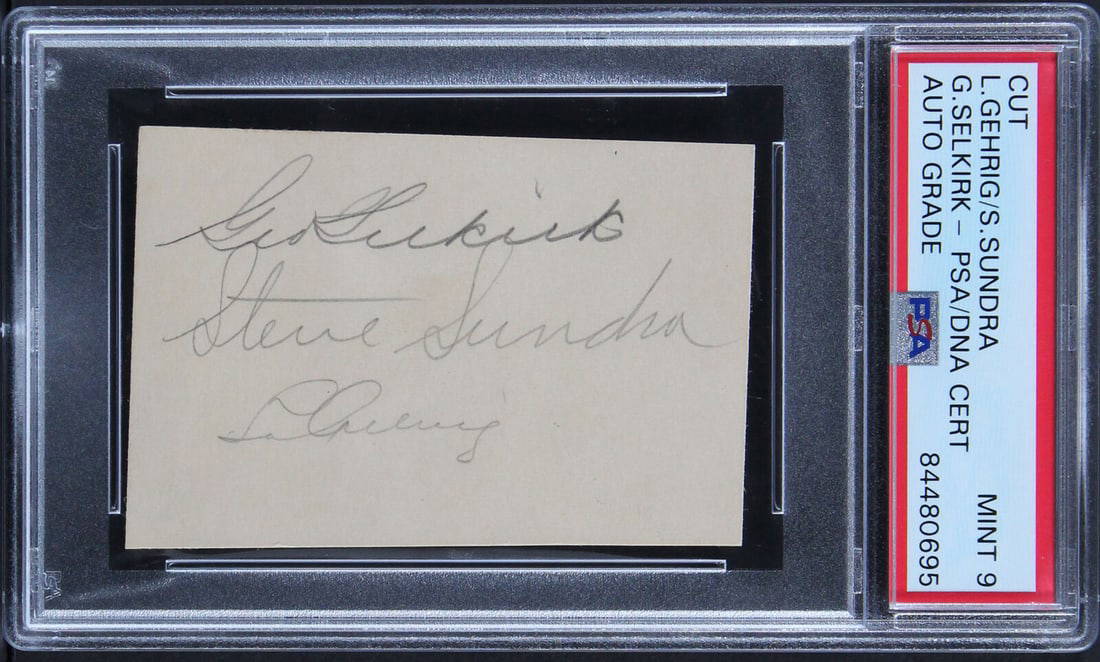 Geo Selkirk
Steve Sundra
Lou Gehrig
CUT
L.GEHRIG/S.SUNDRA
G.SELKIRK - PSA/DNA CERT
AUTO GRADE
MINT 9
84480695
PSA